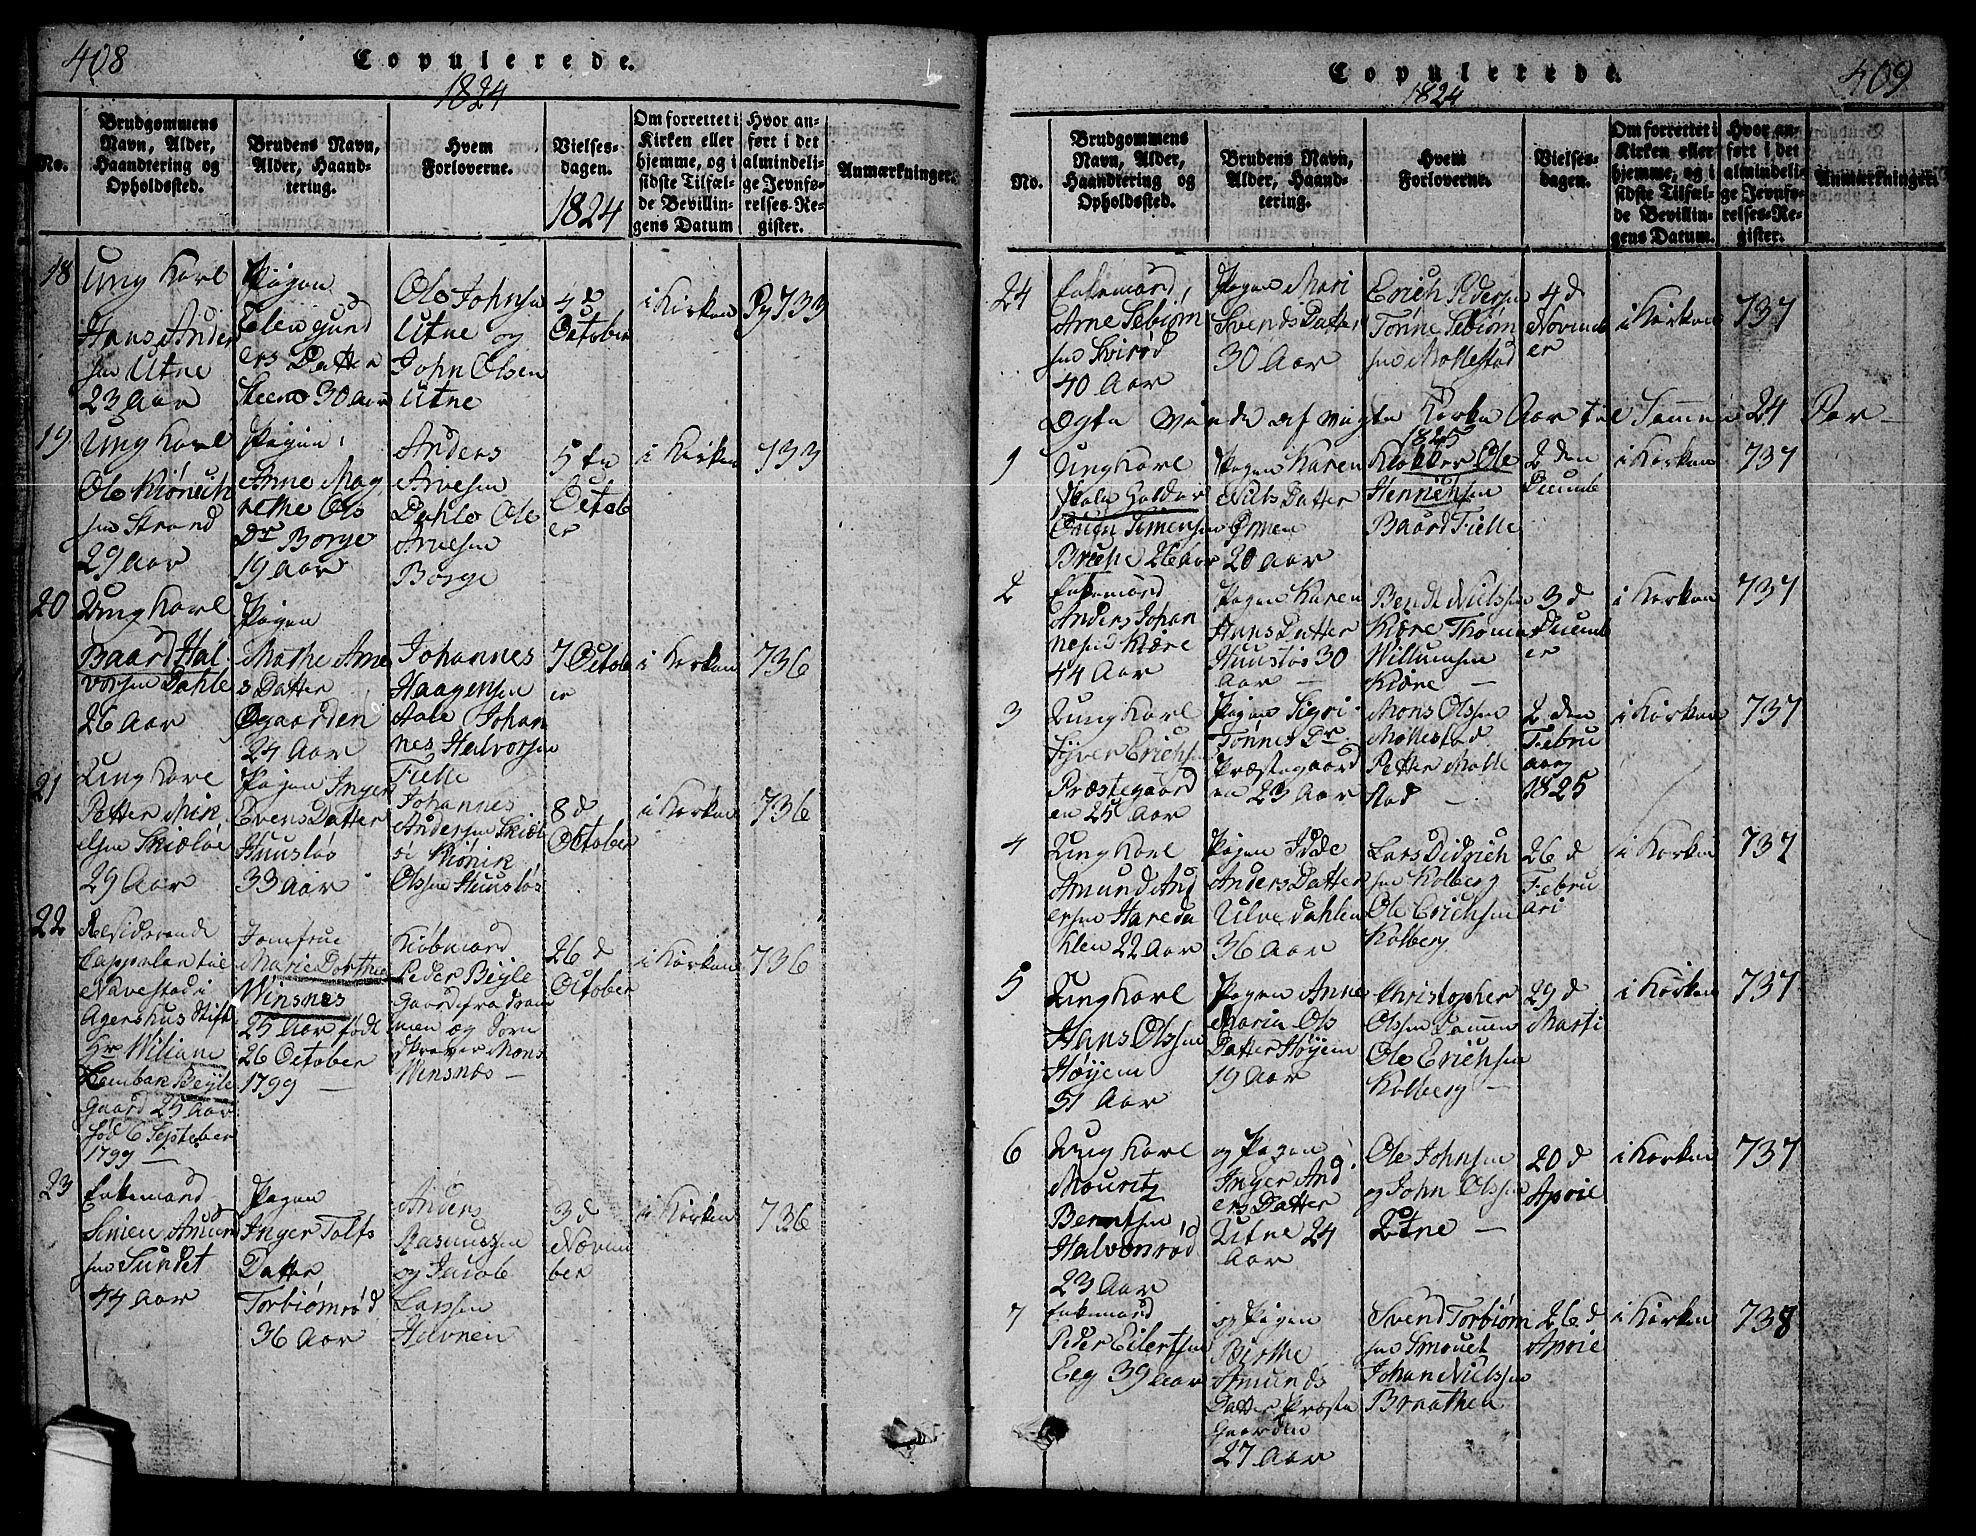 408
Copulerede.
1824
No.
Brudgommens
Navn, Alder,
Haandtering og
Opholdssted.
Brudens Navn,
Alder, Haand-
tering.
Hvem
Forloverne.
Vielses-
dagen.
1824
Om forrettet i
Kirken eller
hjemme, og i
sidste Tilfæl-
de Bevillin-
gens Datum
Hvor an-
ført i det
almindeli-
ge Jevnfø-
relses-Re-
gister.
Anmærkninger.
18
Ung Karl
Hans Ander
sen Utne
23 Aar
Pigen
Elen Gund
ers Datter
Steen 30 Aar
Ole Johnsen
Utne og
John Olsen
Utne
4de
October
i Kirken
Pg 733
19
Ung Karl
Ole Kiønich
sen Strand
29 Aar
Pigen
Anne Mag
rethe Ols
Dr Borge
19 Aar
Anders
Arvesen
Dahle Ole
Arvesen
Borge
5te
Octob
er
i Kirken
733
20
Ung Karl
Baard Hal
vorsen Dahle
26 Aar
Pigen
Mathe Arne
s Datter
Øgaarden
24 Aar
Johannes
Haagensen
Aale Johan
nes Halvorsen
Fielle
7 Octob
er
i Kirken
736
21
Ung Karl
Petter Mik
elsen Skieløe
29 Aar
Pigen Inger
Evens Datter
Huusløs
33 Aar
Johannes
Andersen Skiel
ø Kiønik
Olssen Huusløs
8 d
Oktober
i Kirken
736
22
Residerende
Cappelan til
Navestad i
Agershus Stift
Hr Wiliam
Lembak Beyle
gaard 25 Aar
fød 6 September
1799
Jomfrue
Marie Dorthea
Winsnes
25 Aar født
26 October
1799
Kiøbmand
Peder Beyle
gaard fra Dram
men og Sorn
skrever Mons
Winsnæs
26 d
October
i Kirken
736
23
Enkemand
Simen Amun
sen Sundet
44 Aar
Pigen
Inger Tolfs
Datter
Torbiømrød
36 Aar
Anders
Rasmussen
og Jacob
Larssen
Havnen
3 d
Novem
ber
i Kirken
736
409
Copulerede.
1824
No.
Brudgommens
Navn, Alder,
Haandtering og
Opholdssted.
Brudens Navn,
Alder, Haand-
tering.
Hvem
Forloverne.
Vielses-
dagen.
Om forrettet i
Kirken eller
hjemme, og i
sidste Tilfæl-
de Bevillin-
gens Datum.
Hvor an-
ført i det
almindeli-
ge Jevnfø-
relses-Re-
gister.
Anmærkninger.
24
Enkemand
Arne Sebiøm
sen Svirød
40 Aar
Pigen Mari
Svends Datter
30 Aar
Erich Pedersen
Tønne Sebiøm
sen Mollestad
4 d
Novemb
er
i Kirken
737
Ægte Viede af Kirke Aar til Sammen 24 Par
1825
1
Ung Karl
Skole Holder
Simensen
26 Aar
Pigen Karen
Niels Datter
20 Aar
Klokker Ole
Henrichsen
Baard Fielle
2 den
Decemb
i Kirken
737
2
Enkemand
Anders Johan
nesen Kiære
44 Aar
Pigen Karen
Hans Datter
Huusløs 30
Aar
Bendt Nielsen
Kiære Thomas
Willumsen
Kiære
3 d
Decemb
er
i Kirken
737
3
Ung Karl
Syver Erichsen
Præstegaard
en 25 Aar
Pigen Sigri
Tønnes Dr.
Præstegaard
en 23 Aar
Mons Olssen
Mollestad
Petter Molle
stad
2 den
Febru
aary
1825
i Kirken
737
4
Ung Karl
Amund And
ersen Hareda
len 22 Aar
Pigen Idde
Anders Datter
Ulve dahlen
36 Aar
Lars Didrich
sen Kolberg
Ole Erichsen
Kolberg
26 d
Febru
ari
i Kirken
737
5
Ung Karl
Hans Olssen
Høyem
31 Aar
Pigen Anne
Maria Ols
Datter Høyem
19 Aar
Christopher
Olssen Dammen
Ole Erichsen
Kolberg
29 d
Marti
i Kirken
737
6
Ung Karl
Mouritz
Berntsen
Halvorsrød
23 Aar
og Pigen
Inger And
ers Datter
Utne 24
Aar
Ole Johnsen
og John Olssen
Utne
20 d
Aprie
i Kirken
737
7
Enkemand
Peder Eilertsen
Eeg 39 Aar
og Pigen
Birthe
Amunds
Datter Præste
Gaarden
27 Aar
Svend Torbiøm
sen Smouet
Johan Nielssen
Braathen
26 d
Aprie
i Kirken
738